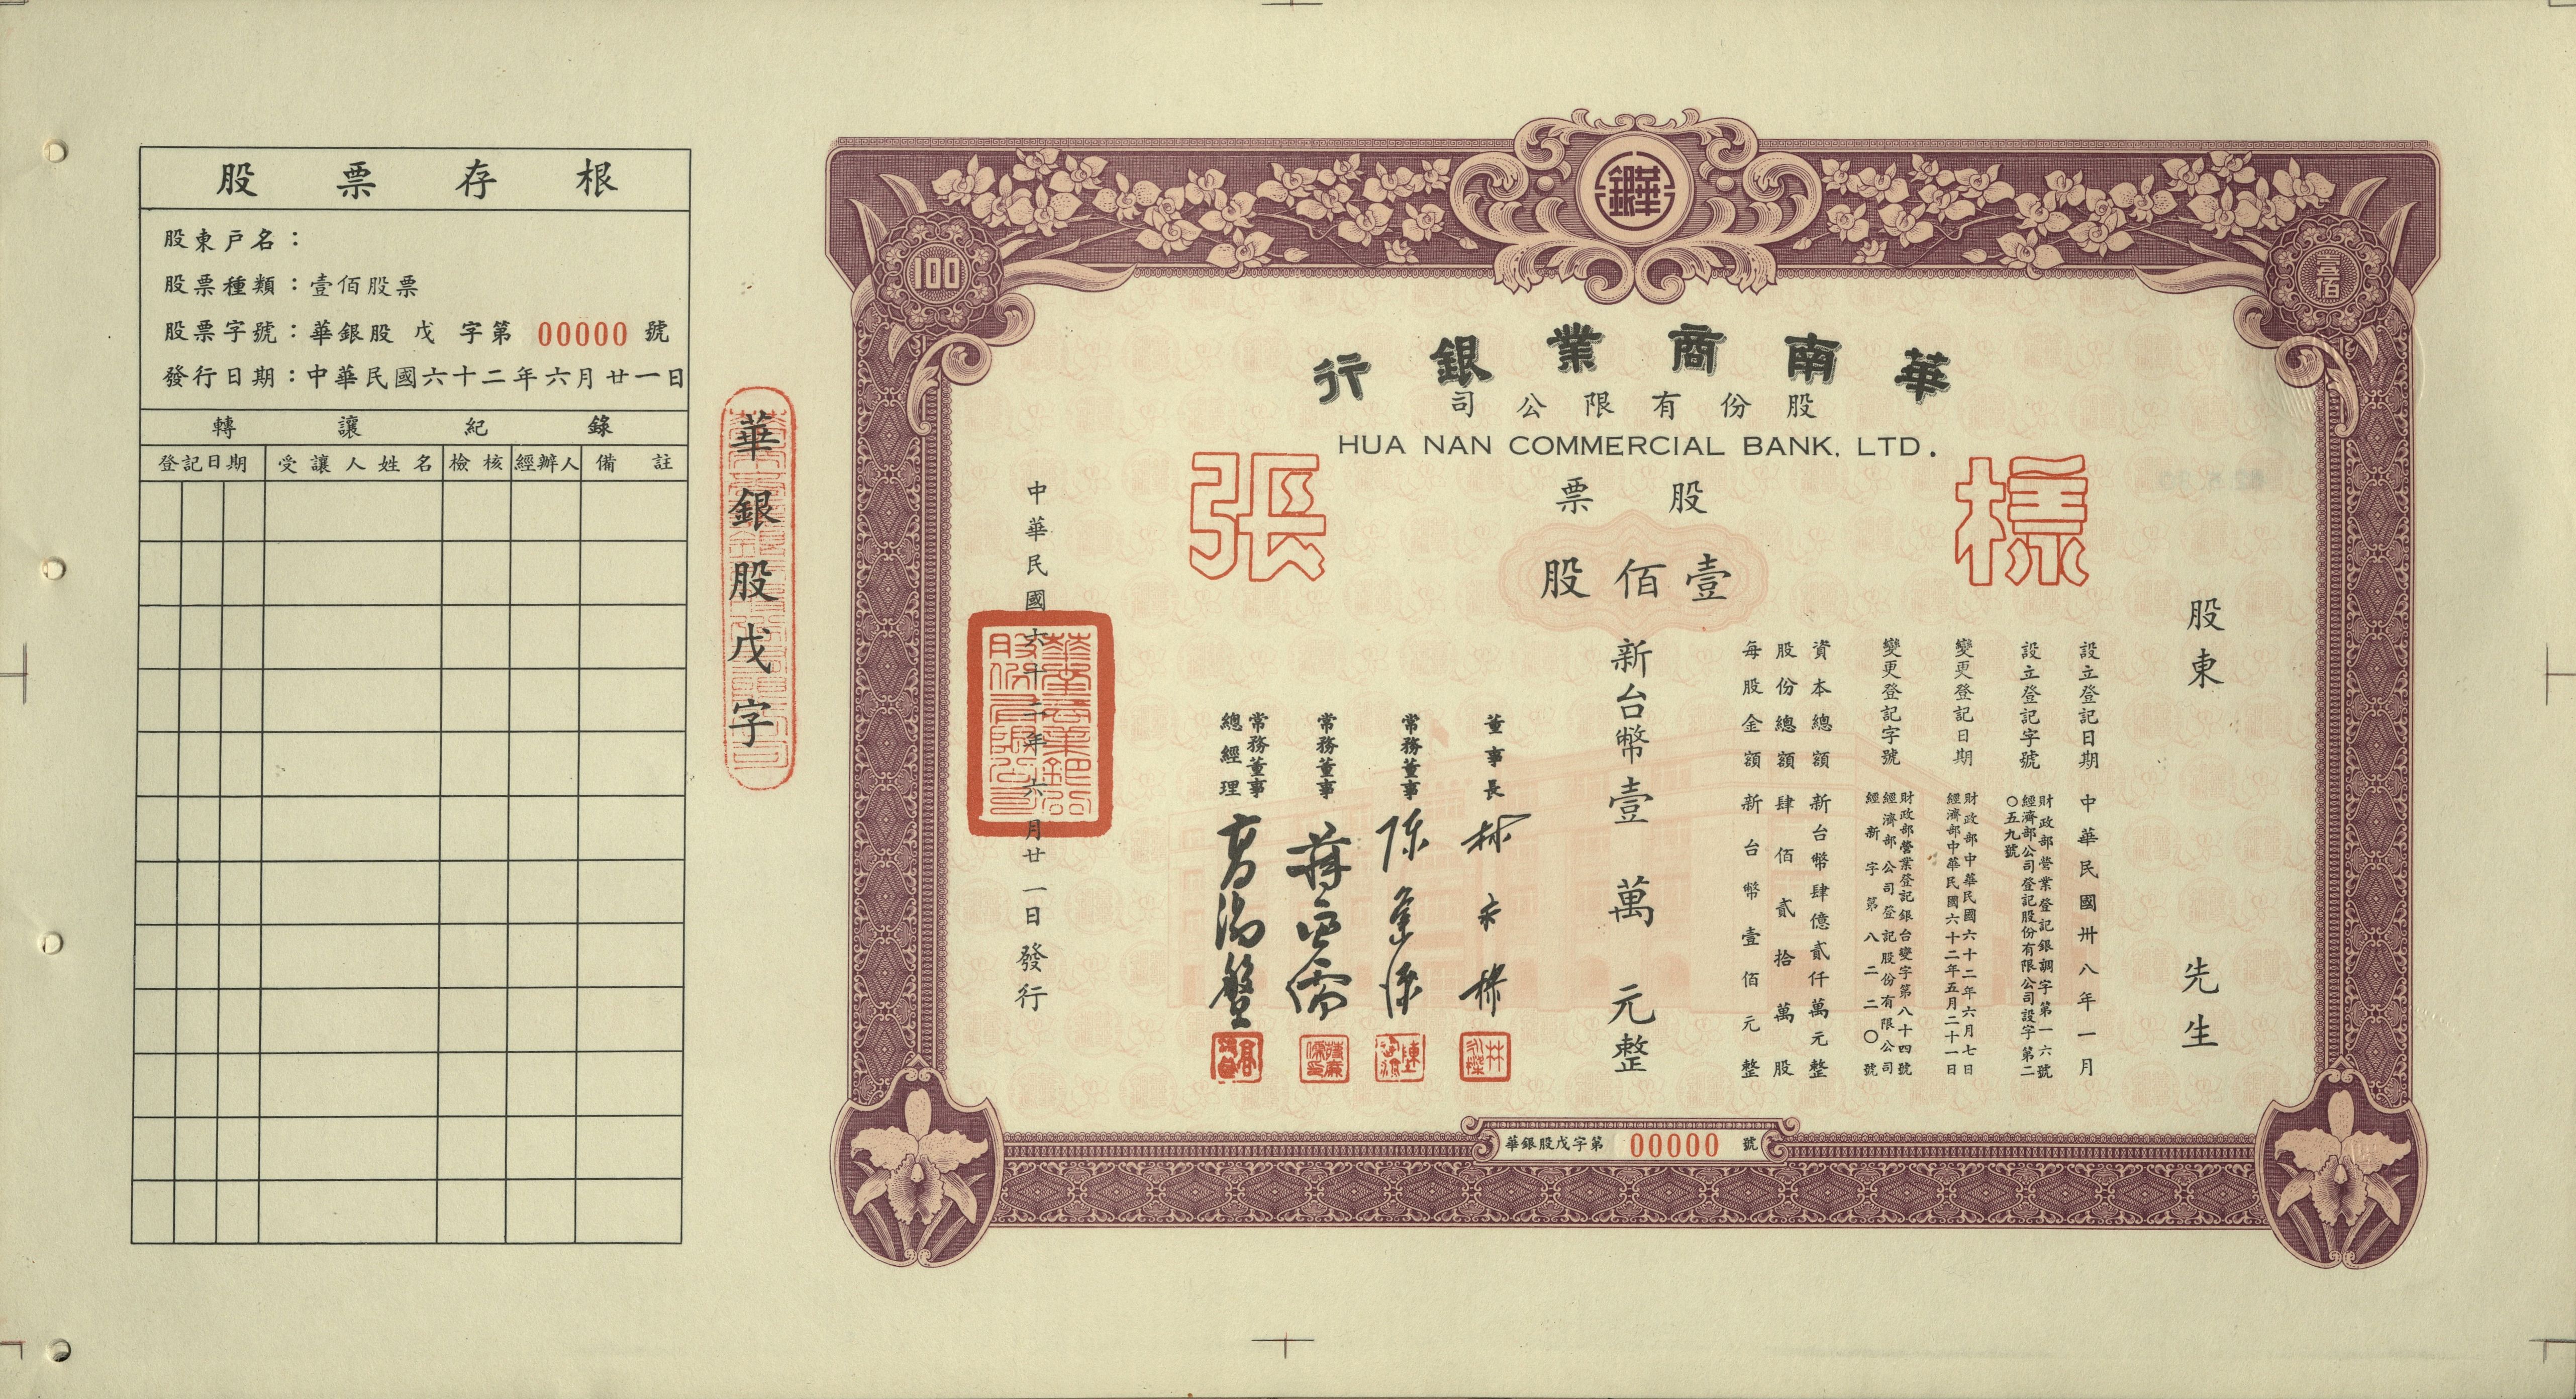 股票存根
股東戶名：
股票種類：壹佰股票
股票字號：華銀股 戊 字第 00000 號
發行日期：中華民國六十二年六月廿一日
轉讓紀錄
登記日期 受讓人姓名 檢核 經辦人 備註
華銀股戊字
華銀
100
壹佰
華南商業銀行
股份有限公司
HUA NAN COMMERCIAL BANK, LTD.
樣張
股票
壹佰股
股東 先生
設立登記日期 中華民國卅八年一月
設立登記字號 財政部營業登記銀調字第一六號
經濟部公司登記股份有限公司設字第二
〇五九號
變更登記日期 財政部中華民國六十二年六月七日
經濟部中華民國六十二年五月二十一日
變更登記字號 財政部營業登記銀台變字第八十四號
經濟部公司登記股份有限公司
經新字第八二二〇號
資本總額 新台幣肆億貳仟萬元整
股份總額 肆佰貳拾萬股
每股金額 新台幣壹佰元整
新台幣壹萬元整
董事長 林永樑
常務董事 陳逢源
常務董事
常務董事
總經理 高湯盤
中華民國六十二年六月廿一日發行
華南商業銀行
股份有限公司
華銀股戊字第 00000 號